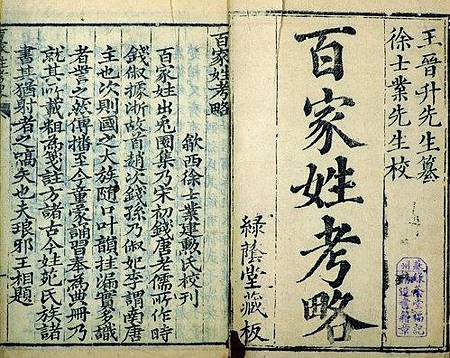 王晉升先生纂
徐士業先生校
百家姓考略
緑蔭堂藏板
百家姓考略
歙西徐士業建勳氏校刊
百家姓出兎園集乃宋初錢唐老儒所作時
錢俶據浙故首趙次錢孫乃俶妃李謂南唐
主也次則國之大族隨口叶韻挂漏實多識
者訾之然傳播至今童蒙誦習奉為典冊乃
就其所載粗為箋註方諸古今姓苑氏族諸
書其猶射者之嚆矢也夫琅邪王相題